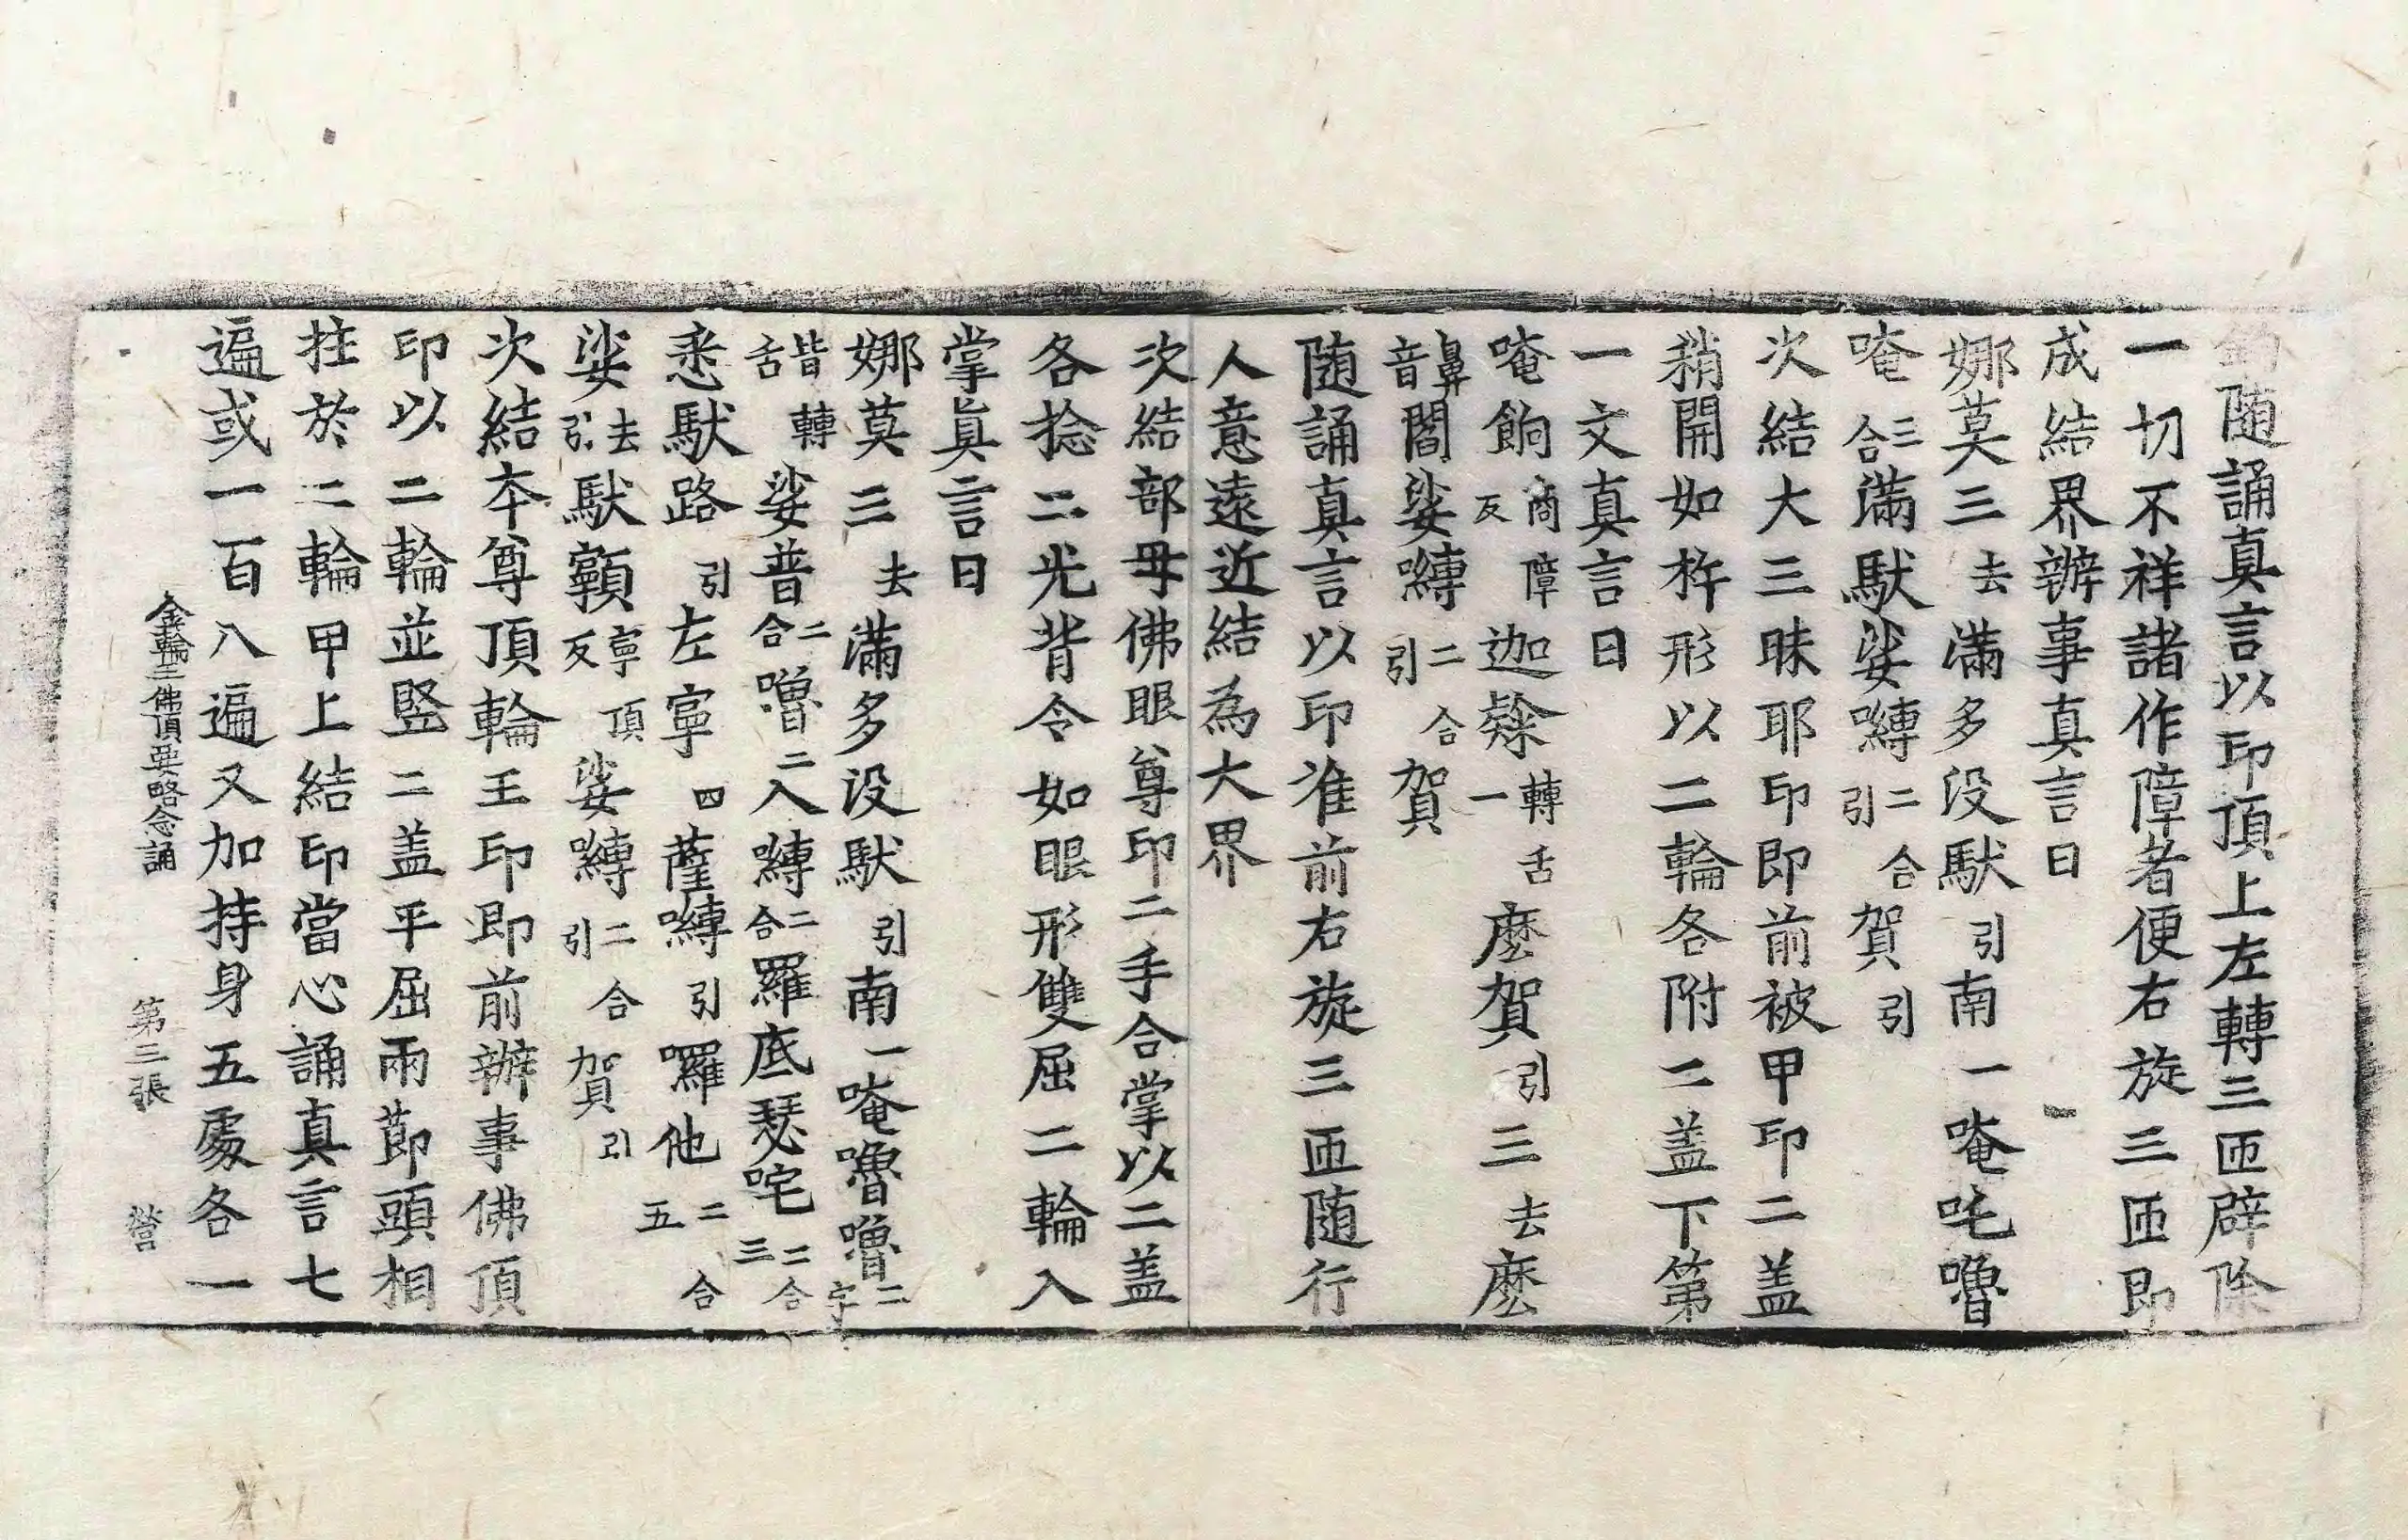 随誦真言以印頂上左轉三匝辟除
一切不祥諸作障者便右旋三匝即
成結界辦事真言曰
娜莫三去滿多没馱引南一唵吒嚕
唵三合滿馱娑嚩二合引賀引
次結大三昧耶印即前被甲印二盖
稍開如杵形以二輪各附二盖下第
一文真言曰
唵餉商障反迦轉舌一麽賀引三去麽
鼻音閻娑嚩二合引賀
随誦真言以印准前右旋三匝随行
人意遠近結為大界
次結部母佛眼尊印二手合掌以二盖
各捻二光背令如眼形雙屈二輪入
掌眞言曰
娜莫三去滿多没馱引南一唵嚕嚕二字
皆轉舌娑普二合嚕二入嚩二合羅底瑟咤二合三
悉馱路引左寧四薩嚩引囉他二合五
娑去引馱顐寧頂反娑嚩二合引賀引
次結本尊頂輪王印即前辦事佛頂
印以二輪並竪二盖平屈兩莭頭相
拄於二輪甲上結印當心誦真言七
遍或一百八遍又加持身五處各一
金輪王佛頂要略念誦 第三張 營